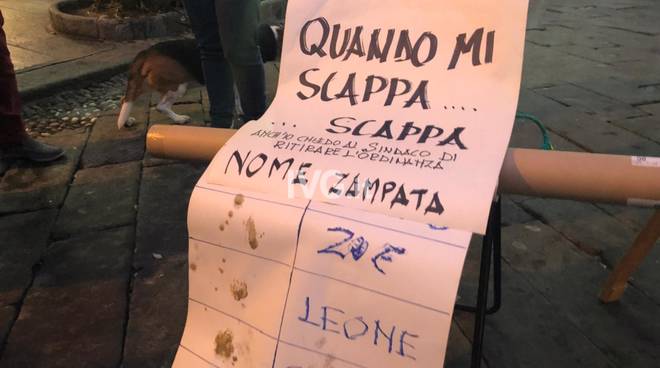 QUANDO MI
SCAPPA....
... SCAPPA
ANCH'IO CHIEDO AL SINDACO DI
RITIRARE L'ORDINANZA
NOME ZAMPATA
IVG
ZOE
LEONE